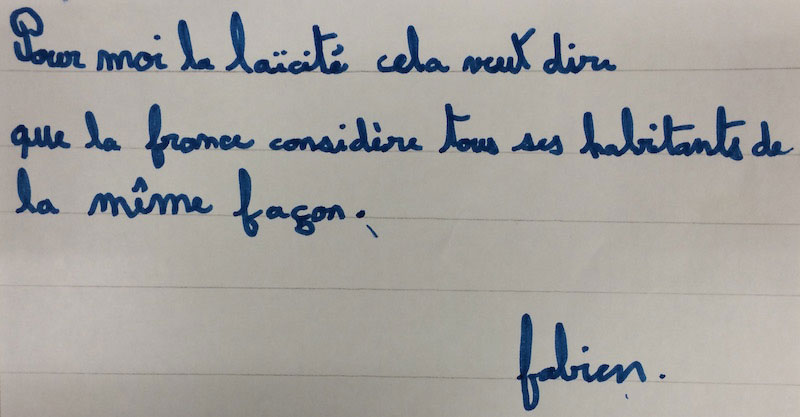 Pour moi la laïcité cela veut dire
que la france considère tous ses habitants de
la même façon.
fabien.